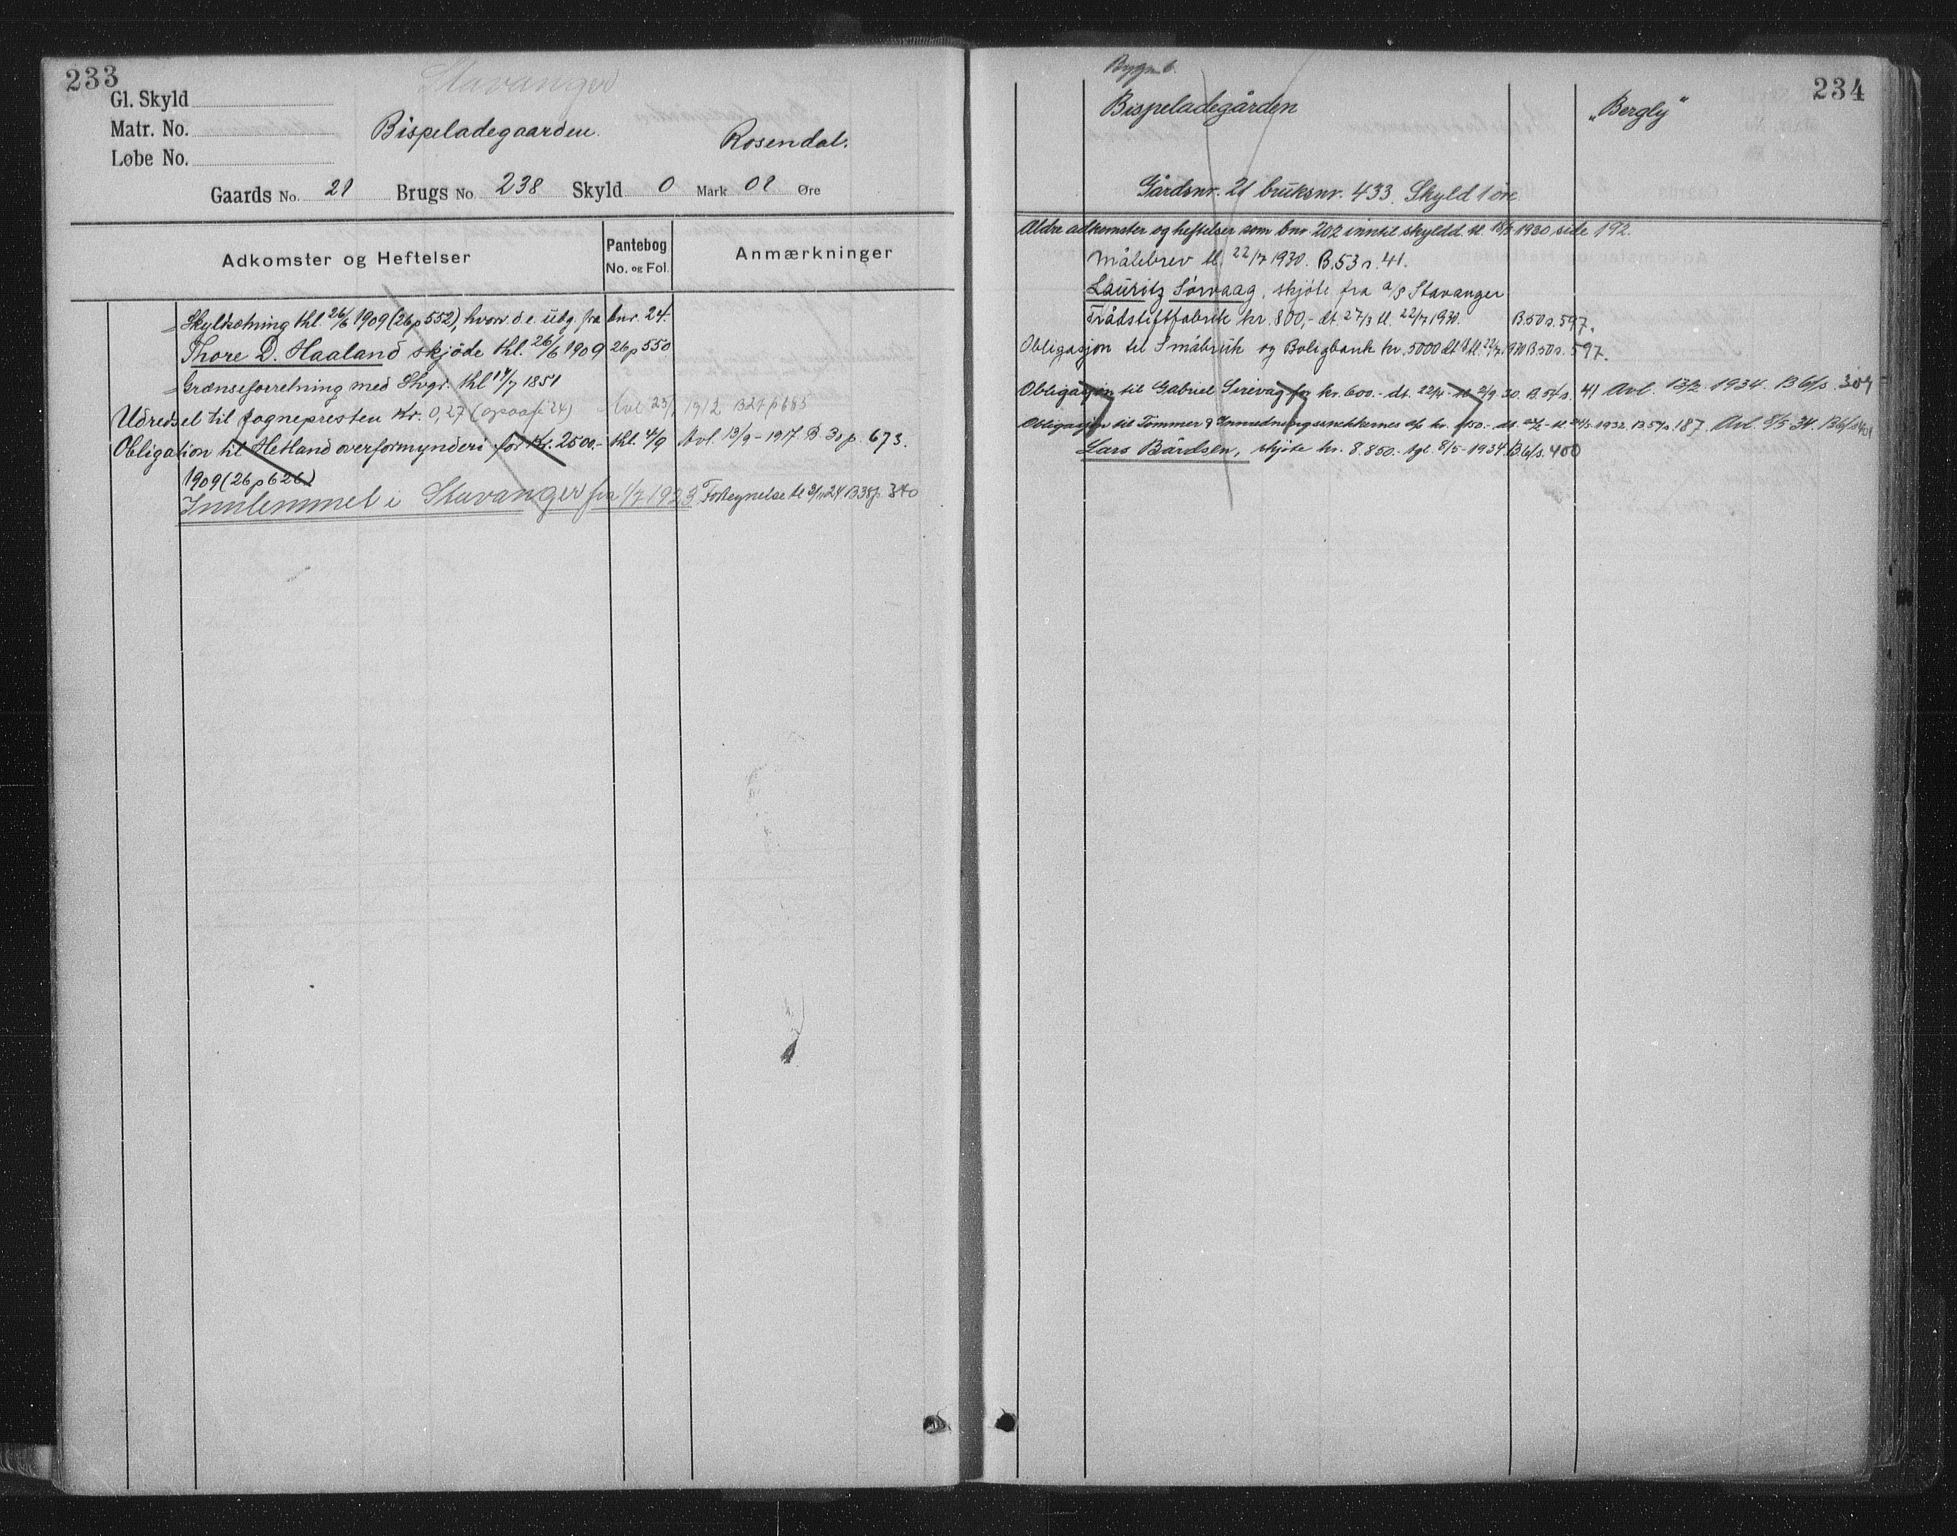 233
Stavanger
Gl. Skyld
Matr. No.
Bispeladegaarden.
Rosendal.
Løbe No.
Gaards No. 21 Brugs No. 238 Skyld 0 Mark 02 Øre
Adkomster og Heftelser
Pantebog
No. og Fol.
Anmærkninger
Skyldsetning thl. 26/6 1909 (26 p 552), hvorv. d.e. udg. fra bnr. 24.
Thore D. Haaland skjøde thl. 26/6 1909 26 p 550
Grænseforretning med Stvgr. thl 14/7 1851
Udredsel til sognepresten kr. 0,27 (opsaafr 24) Avl 23/ 1912 B 27 p 685
Obligation til Hetland overformynderi for kr. 2500,- thl. 4/9 Avl. 13/9 - 1917 B 30 p. 673.
1909 (26 p 626)
Innlemmet i Stavanger fra 1/7 1923 Fortegnelse tl 3/1 24 B 38 p. 340
234
Bygn.b.
Bispeladegården
"Bergly"
Gårdsnr. 21 bruksnr. 433. Skyld 1 øre
Eldre adkomster og heftelser som bnr 202 inntil skyldd. tl. 18/7 1930 side 192.
Målebrev tl. 22/7 1930. B. 53 s. 41.
Lauritz Sørvaag, skjøte fra a/s Stavanger
Trådstiftfabrik kr. 800,- dt. 27/3 tl. 22/7 1930. B. 50 s. 597.
Obligasjon til Småbruk og Boligbank kr. 5000 dt tl. 22/7 1930 B. 50 s. 597.
Obligasjon til Gabriel Sirevag for kr. 600.- dt. 22/4 - tl 2/9 30. B. 54 s. 41 Avl. 13/2 1934. B 61 s. 309
Obligasjon til Tømmer & Innredningssnekkernes a/s kr. 1150.- 1932 B. 57 s 187 Avl. 8/5 34. B 61 s 401
Lars Bårdsen, skjøte kr. 8.850.- tgl. 8/5 - 1934 B 61 s. 400